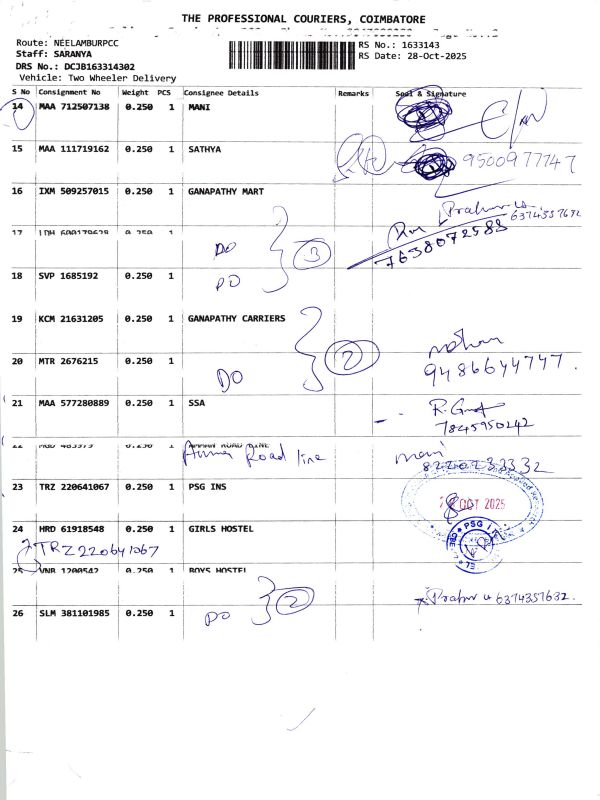 THE PROFESSIONAL COURIERS, COIMBATORE
Route: NEELAMBURPCC
Staff: SARANYA
DRS No.: DCJB163314302
Vehicle: Two Wheeler Delivery
RS No.: 1633143
RS Date: 28-Oct-2025
S No Consignment No Weight PCS Consignee Details Remarks Seal & Signature
14 MAA 712507138 0.250 1 MANI
15 MAA 111719162 0.250 1 SATHYA 9500977747
16 IXM 509257015 0.250 1 GANAPATHY MART
6374357632
7638072588
17 0.250 1 DO
3
18 SVP 1685192 0.250 1 DO
19 KCM 21631205 0.250 1 GANAPATHY CARRIERS
2
20 MTR 2676215 0.250 1 DO 9486644747.
21 MAA 577280889 0.250 1 SSA
7845950242
22 0.250 1 Road line mani
8220233332
23 TRZ 220641067 0.250 1 PSG INS
OCT 2025
PSG
24 HRD 61918548 0.250 1 GIRLS HOSTEL
TRZ220641067
25 VNB 1200542 0.250 1 BOYS HOSTEL
2
26 SLM 381101985 0.250 1 DO 6374357632.